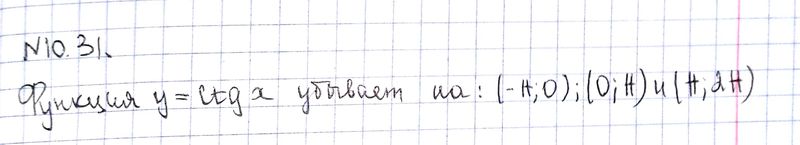 N10.31.
Функция y = ctg x убывает на: (-π; 0); (0; π) и (π; 2π)